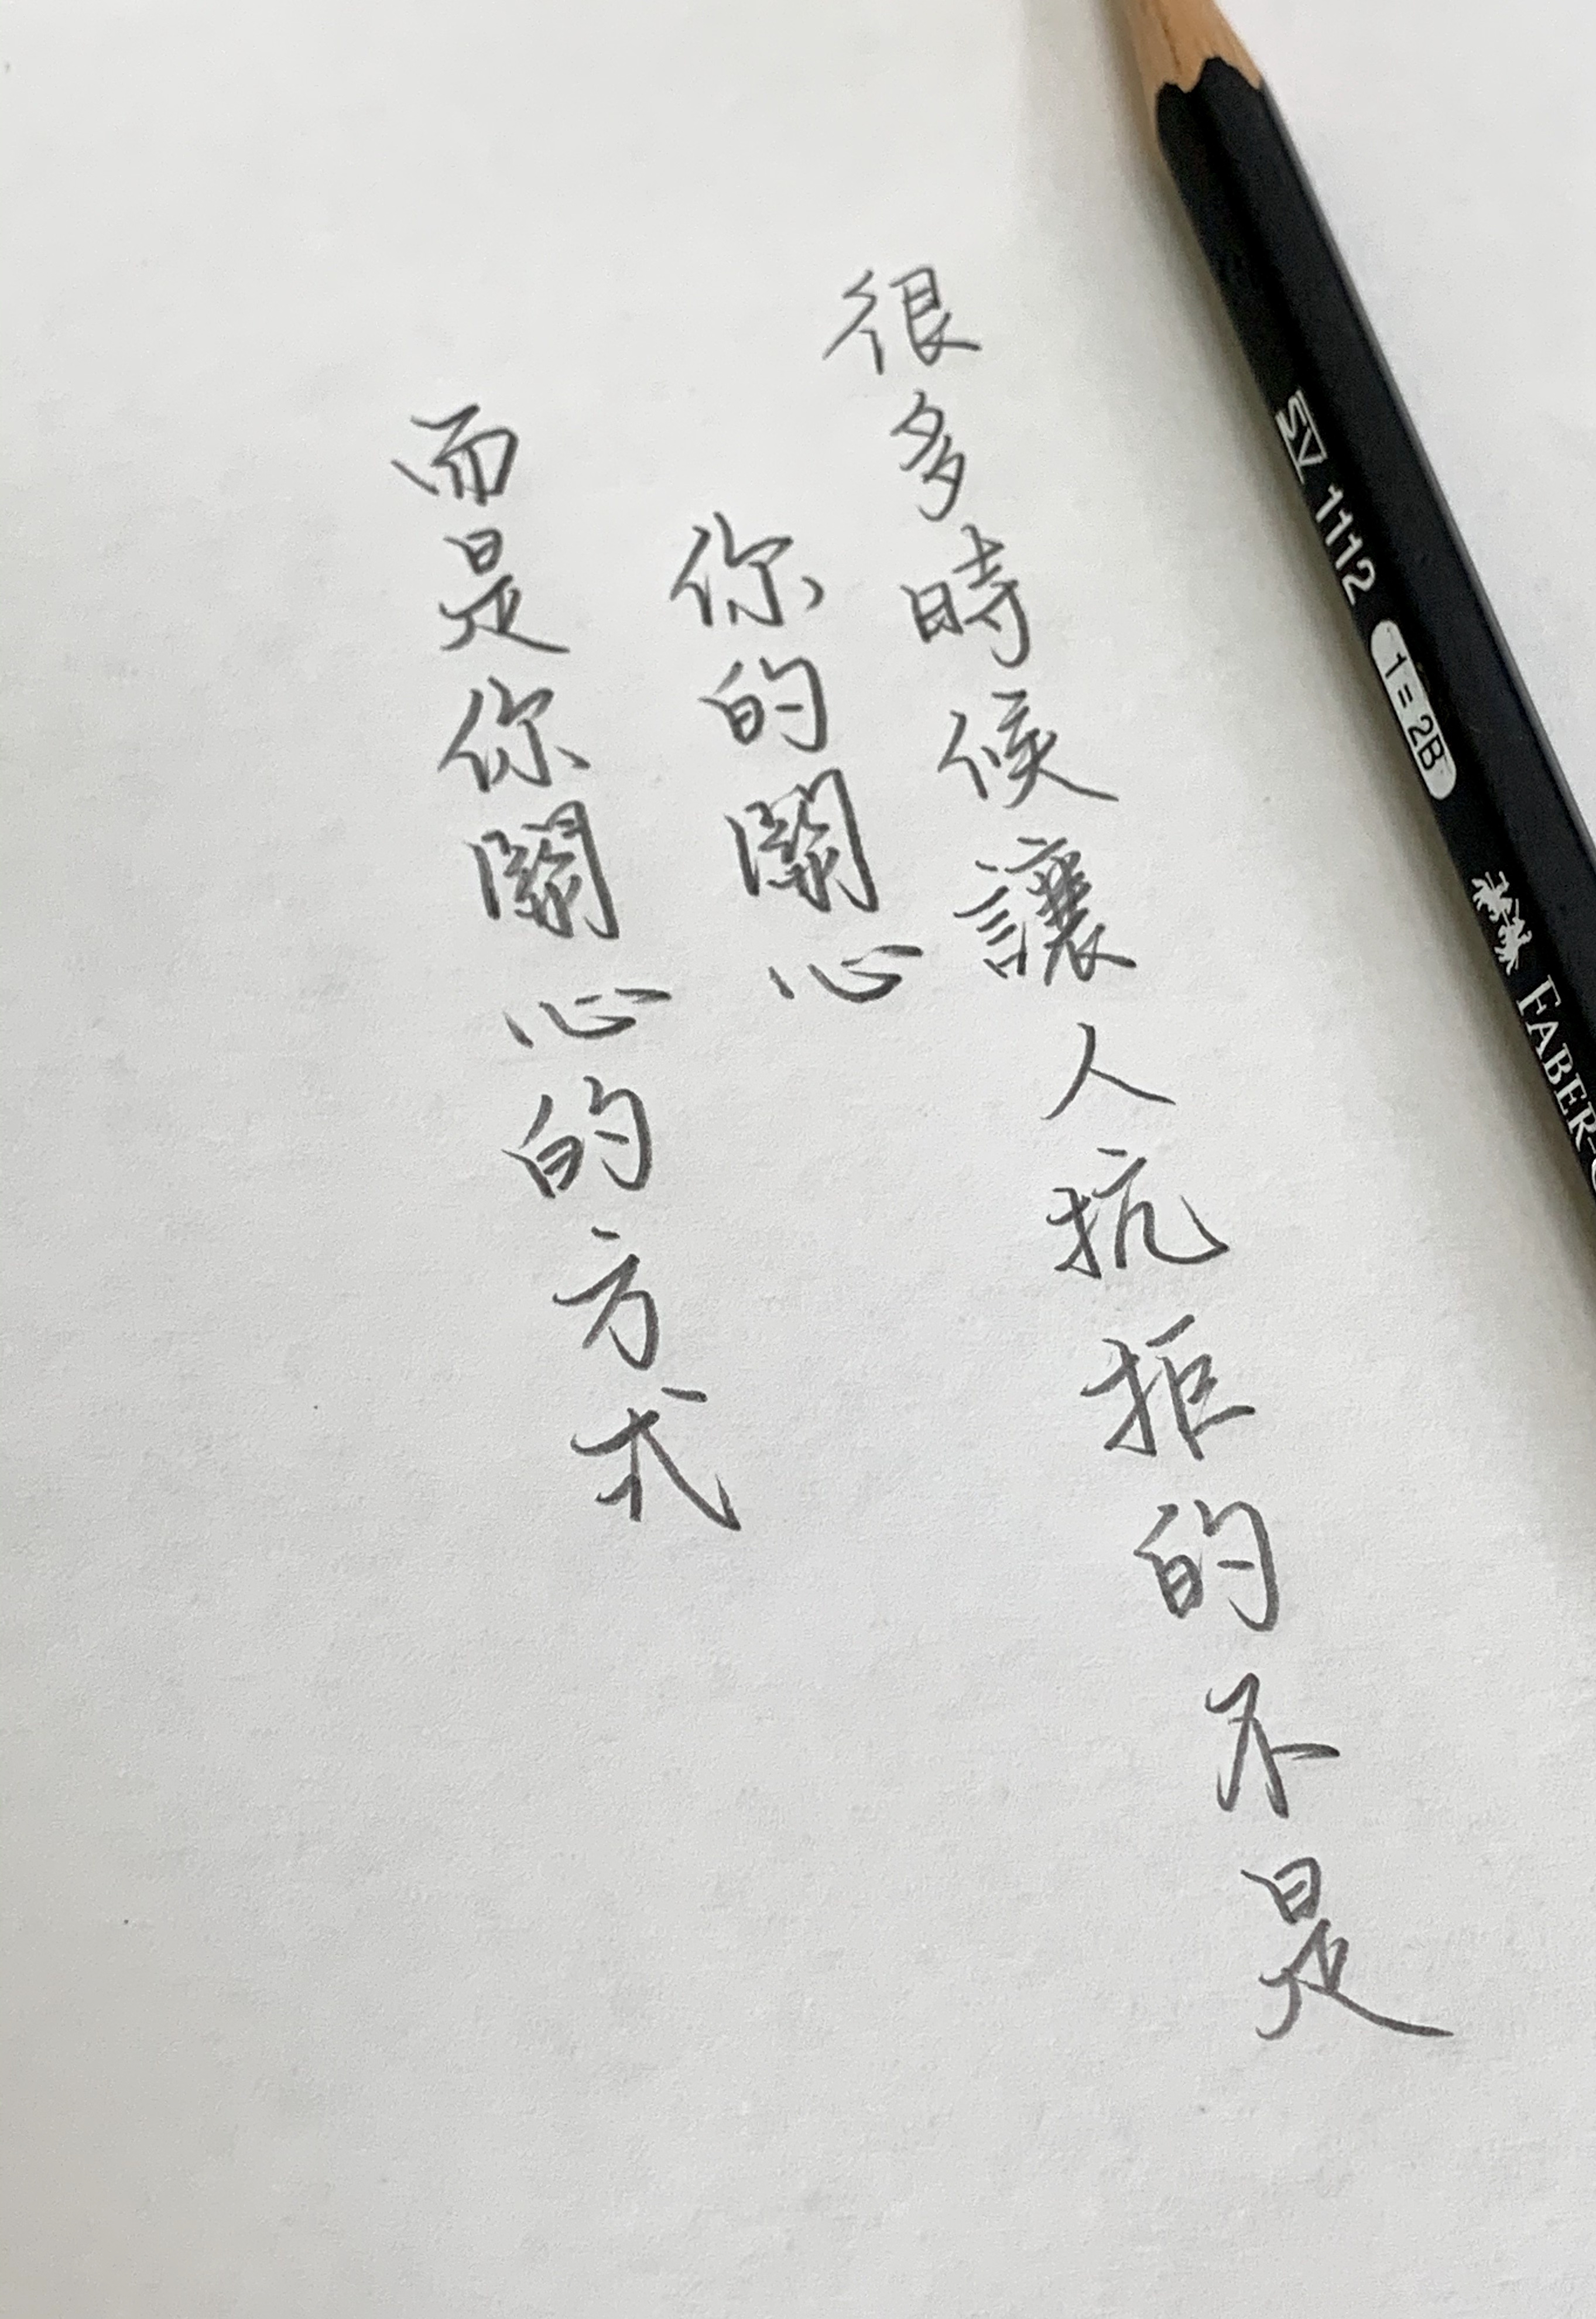 很多時候讓人抗拒的不是
你的關心
而是你關心的方式
SV 1112 1=2B FABER-C